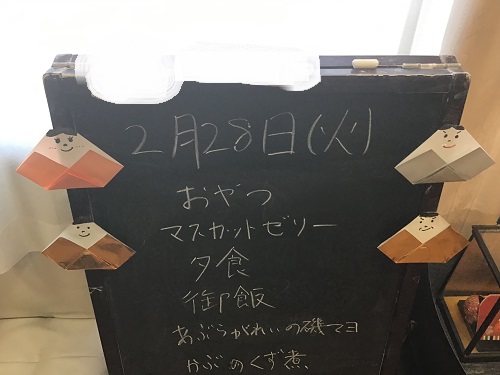 2月28日(火)
おやつ
マスカットゼリー
夕食
御飯
あぶらがれいの磯マヨ
かぶのくず煮